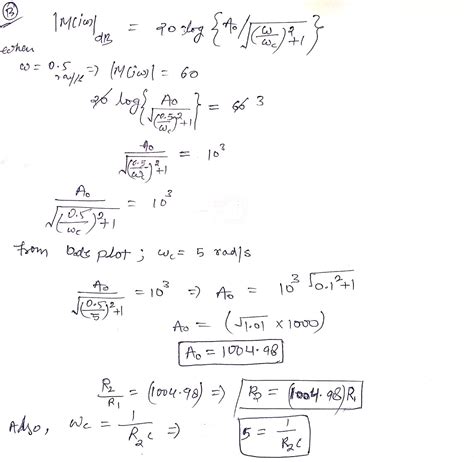 (B) |M(jω)|dB = 20 log { A₀ / √((ω/ωc)² + 1) }
when
ω = 0.5 rad/s => |M(jω)| = 60
20 log { A₀ / √((0.5/ωc)² + 1) } = 60 3
A₀ / √((0.5/ωc)² + 1) = 10³
A₀ / √((0.5/ωc)² + 1) = 10³
from bode plot ; ωc = 5 rad/s
A₀ / √((0.5/5)² + 1) = 10³ => A₀ = 10³ √(0.1² + 1)
A₀ = (√1.01 × 1000)
A₀ = 1004.98
R₂/R₁ = (1004.98) => R₂ = (1004.98) R₁
Also, ωc = 1/(R₂C) => 5 = 1/(R₂C)